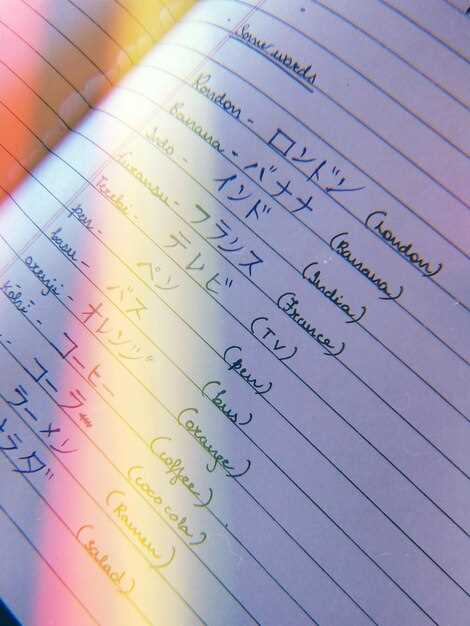 Some words
Rondon - ロンドン (London)
Banana - バナナ (Banana)
Indo - インド (India)
furansu - フランス (France)
Terebi - テレビ (TV)
pen - ペン (pen)
basu - バス (bus)
orenji - オレンジ (orange)
Kōhī - コーヒー (coffee)
コーラ (coco cola)
ラーメン (Ramen)
サラダ (salad)